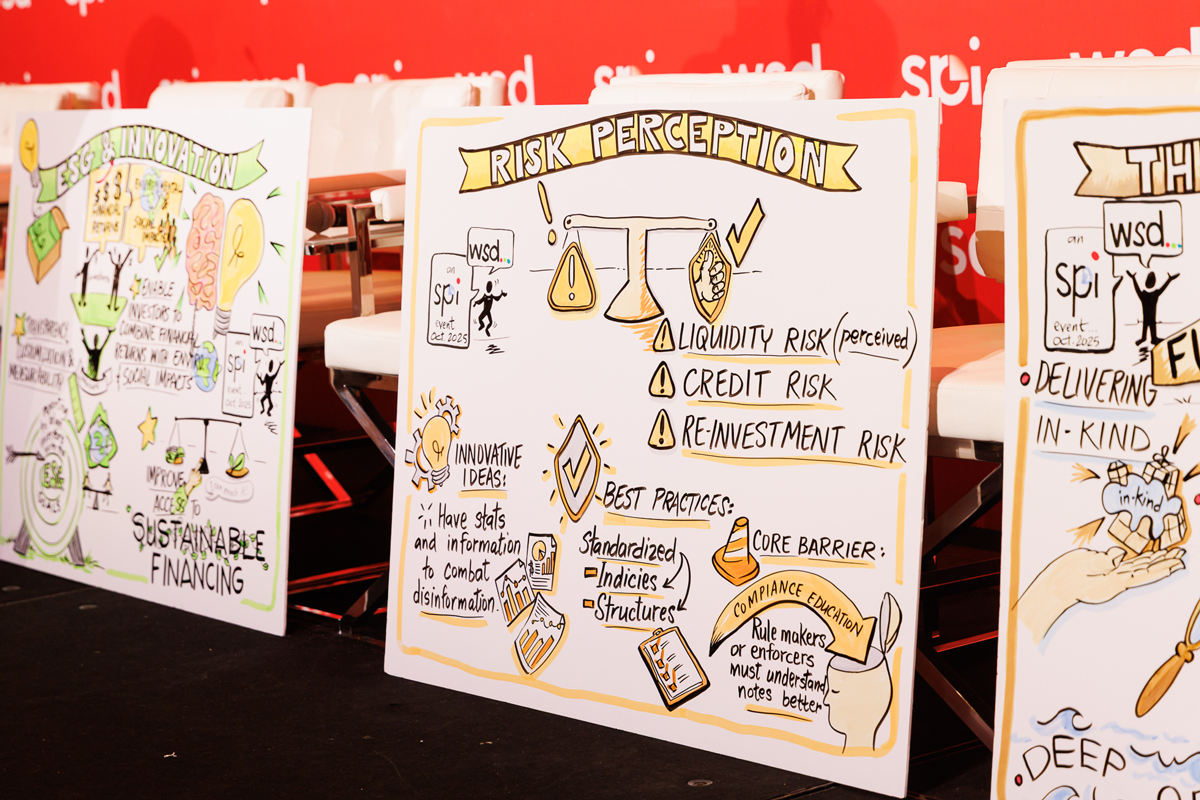 spi
wsd
spi
wsd
spi
ESG & INNOVATION
$$$
FINANCIAL
RETURNS
ENABLE
INVESTORS TO
COMBINE FINANCIAL
RETURNS WITH ENV
& SOCIAL IMPACTS
TRANSPARENCY,
CUSTOMIZATION &
MEASURABILITY
wsd..
an
spi
event
Oct. 2025
ESG
IMPROVE
ACCESS TO
SUSTAINABLE
FINANCING
RISK PERCEPTION
wsd..
an
spi
event
Oct. 2025
LIQUIDITY RISK (perceived)
CREDIT RISK
RE-INVESTMENT RISK
INNOVATIVE
IDEAS:
Have stats
and information
to combat
disinformation
BEST PRACTICES:
Standardized
Indicies
Structures
CORE BARRIER:
COMPIANCE EDUCATION
Rule makers
or enforcers
must understand
notes better
TH
wsd...
an
spi
event...
Oct. 2025
FU
DELIVERING
IN-KIND
in-kind
DEEP